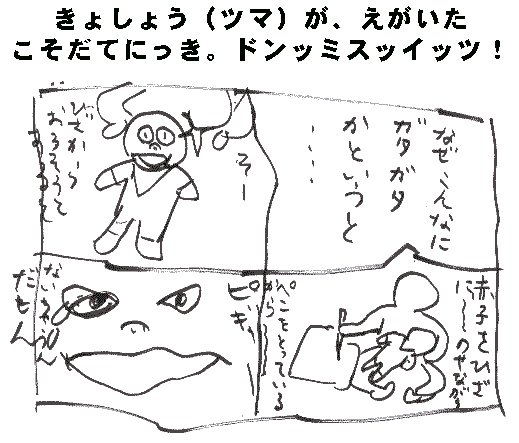 きょしょう（ツマ）が、えがいた
こそだてにっき。ドンッミスッイッツ！
なぜこんなに
ガタガタ
かというと
・・・・
赤子をひざ
に〜〜のせながら
ぺこをとっている
から〜〜
そー
ひざから
おろそうと
すると
ピギィ
ないちゃうん
だもん